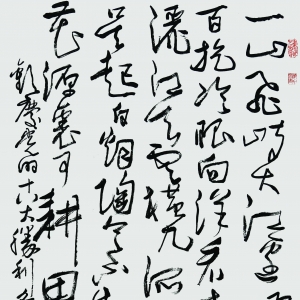 一山飞峙大江邊
百旋冷眼向洋看
洒江天雲橫九派
吴起白烟陶令不
花源裏可耕田
歡慶党的十八大勝利